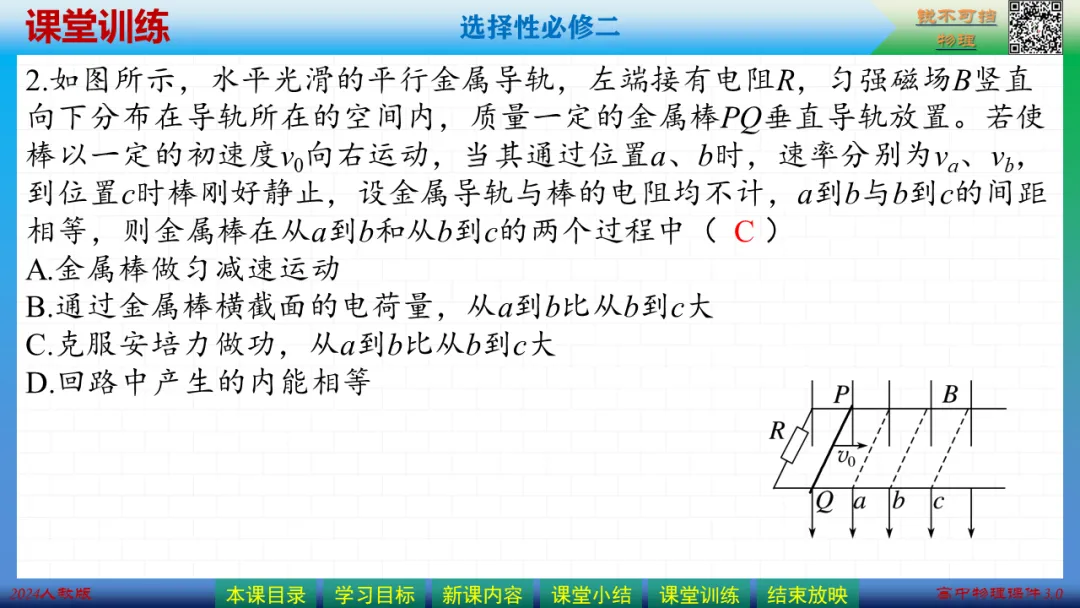 课堂训练
选择性必修二
锐不可挡
物理
2.如图所示，水平光滑的平行金属导轨，左端接有电阻R，匀强磁场B竖直
向下分布在导轨所在的空间内，质量一定的金属棒PQ垂直导轨放置。若使
棒以一定的初速度v₀向右运动，当其通过位置a、b时，速率分别为vₐ、v_b，
到位置c时棒刚好静止，设金属导轨与棒的电阻均不计，a到b与b到c的间距
相等，则金属棒在从a到b和从b到c的两个过程中（ C ）
A.金属棒做匀减速运动
B.通过金属棒横截面的电荷量，从a到b比从b到c大
C.克服安培力做功，从a到b比从b到c大
D.回路中产生的内能相等
P B
R
v₀
Q a b c
2024人教版
本课目录 学习目标 新课内容 课堂小结 课堂训练 结束放映
高中物理课件3.0